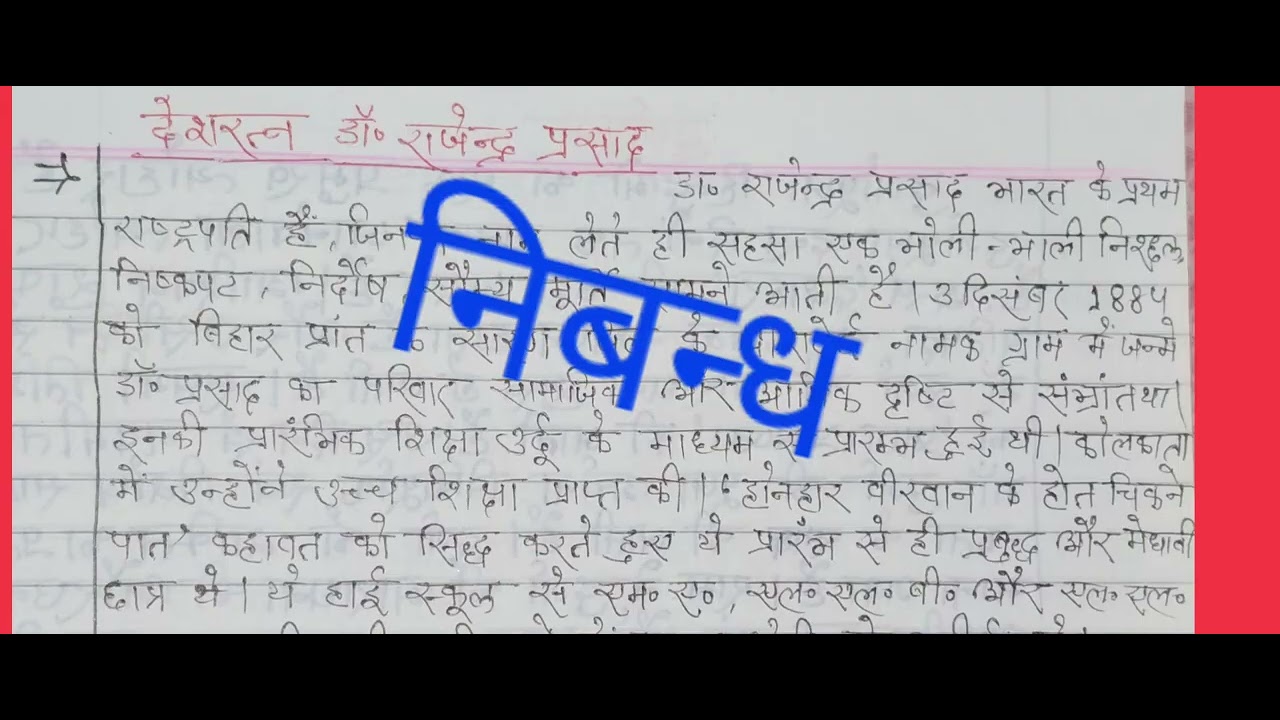 देशरत्न डॉ० राजेन्द्र प्रसाद
⇒ डा० राजेन्द्र प्रसाद भारत के प्रथम
राष्ट्रपति हैं, लेते ही सहसा एक भोली-भाली निश्छल,
निष्कपट, निर्दोष, सौम्य मूर्ति सामने आती है। 3 दिसंबर 1884
को बिहार प्रांत के सारण नामक ग्राम में जन्मे
डॉ० प्रसाद का परिवार सामाजिक और दृष्टि से संभ्रांत था।
इनकी प्रारंभिक शिक्षा उर्दू के माध्यम से प्रारम्भ हुई थी। कोलकाता
में उन्होंने उच्च शिक्षा प्राप्त की। 'होनहार वीरवान के होत चिकने
पात' कहावत को सिद्ध करते हुए ये प्रारंभ से ही प्रबुद्ध और मेधावी
छात्र थे। ये हाई स्कूल से एम० ए०, एल० एल० बी० और एल० एल०
निबन्ध